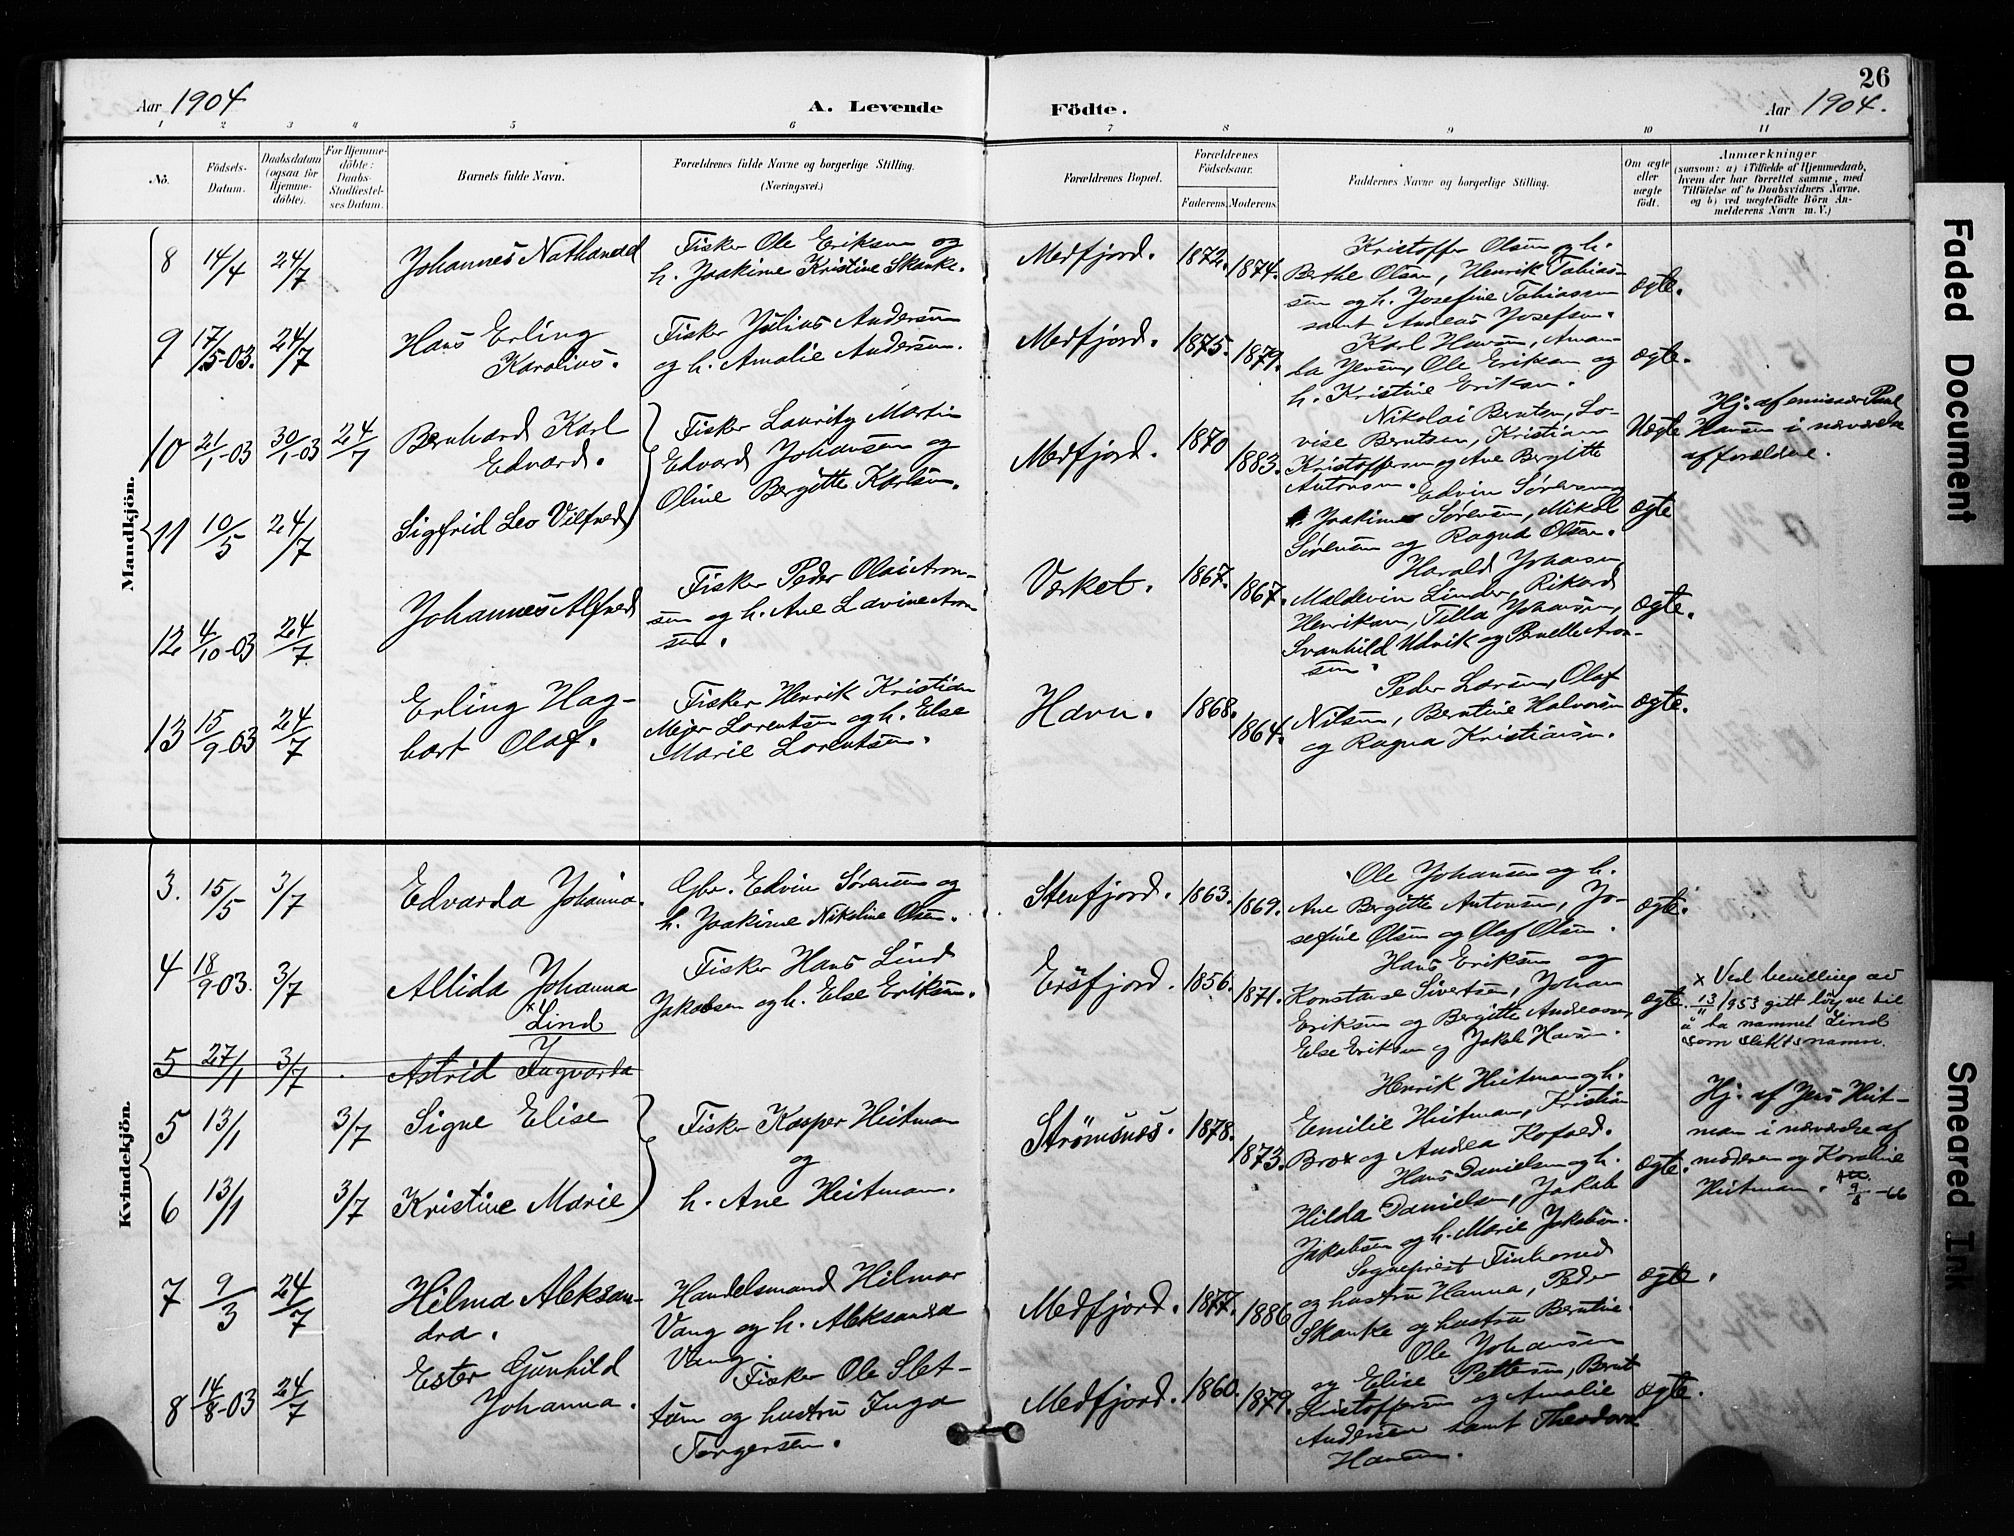 26
Aar 1904
A. Levende
Födte.
Aar 1904.
1 2 3 4 5 6 7 8 9 10 11
No.
Födsels-
Datum.
Daabsdatum
(ogsaa for
Hjemme-
döbte).
For Hjemme-
döbte:
Daabs-
Stadfæstel-
ses Datum.
Barnets fulde Navn.
Forældrenes fulde Navne og borgerlige Stilling.
(Næringsvei.)
Forældrenes Bopæl.
Forældrenes
Födselsaar.
Faderens. Moderens.
Faddernes Navne og borgerlige Stilling.
Om ægte
eller
uægte
födt.
Anmærkninger
(saasom: a) i Tilfælde af Hjemmedaab,
hvem der har forrettet samme, med
Tilföielse af to Daabsvidners Navne,
og b) ved uægtefödte Börn An-
melderens Navn m. V.)
Mandkjön.
8 14/4 24/7
Johannes Nathanael
Fisker Ole Eriksen og
h. Joakime Kristine Skanke.
Medfjord. 1872. 1874.
Kristoffer Olsen og h.
Berthe Olsen, Henrik Tobias-
sen og h. Josefine Tobiassen
samt Andeas Josefsen.
ægte.
9 17/5-03. 24/7
Hans Erling
Karolius.
Fisker Julius Andersen
og h. Amalie Andersen.
Medfjord. 1875. 1879.
Karl Hansen, Aman-
da Jensen, Ole Eriksen og
h. Kristine Eriksen.
ægte.
10 21/1-03 30/1-03 24/7
Bernhard Karl
Edvard.
Fisker Lauritz Martin
Edvard Johansen og
Oline Bergitte Karlsen.
Medfjord. 1870 1883.
Nikolai Berntsen, Lo-
vise Berntsen, Kristian
Kristoffersen og Ane Bergitte
Antonsen.
Uægte
Hj. af emissær Paul
Hansen i nærværelse
af forældrene.
11 10/5 24/7
Sigfrid Leo Vilfred
Edvin Sørensen
Joakime Sørensen, Mikal
Sørensen og Ragna Olsen.
ægte
12 4/10-03 24/7
Johannes Alfred
Fisker Peder Olai Aron-
sen og h. Ane Lavine Aron-
sen.
Værket. 1867. 1867.
Harald Johansen
Maldevin Linder, Rikard
Henriksen, Tilla Johansen,
Svanhild Udvik og Pernelle Aron-
sen.
ægte.
13 15/9-03 24/7
Erling Hag-
bart Olaf.
Fisker Henrik Kristian
Mejer Lorentsen og h. Else
Marie Lorentsen.
Havn. 1868. 1864.
Peder Larsen, Olaf
Nilsen, Berntine Halvorsen
og Ragna Kristiansen.
ægte.
Kvindekjön.
3. 15/5 3/7
Edvarda Johanna.
Gbr. Edvin Sørensen og
h. Joakime Nikoline Olsen.
Stenfjord. 1863. 1869.
Ole Johansen og h.
Ane Bergitte Antonsen, Jo-
sefine Olsen og Olaf Olsen.
ægte.
4 18/9-03. 3/7
Allida Johanna
x Lind
Fisker Hans Lind
Jakobsen og h. Else Eriksen.
Ersfjord. 1856. 1871.
Hans Eriksen og
Konstanse Sivertsen, Johan
Eriksen og Bergitte Andreassen,
Else Eriksen og Jakob Hansen.
ægte.
x Ved bevilling av
13/11 1953 gitt løyve til
å ta namnet Lind
som slektsnamn.
5 27/1 3/7
Astrid Ingvarda
5 13/1 3/7
Signe Elise
Fisker Kasper Heitman
og
h. Ane Heitman.
Strømsnes. 1878. 1873.
Henrik Heitman og h.
Emilie Heitman, Kristian
Brox og Andea Kofoed.
Hj. af Jens Heit-
man i nærværelse af
moderen og Karoline
Heitman.
6 13/1 3/7
Kristine Marie
Hans Danielsen og h.
Hilda Danielsen, Jakob
Jakobsen og h. Marie Jakobsen.
ægte.
7 9/3 24/7
Hilma Aleksan-
dra.
Handelsmand Hilmar
Vang og h. Aleksandra
Vang.
Medfjord. 1877. 1886
Sogneprest Finherud
og hustru Hanna, Peder
Skanke og hustru Berntine.
ægte.
8 14/8-03 24/7
Ester Gunhild
Johanna.
Fisker Ole Slet-
tum og hustru Inga
Torgersen.
Medfjord. 1860. 1879.
Ole Johansen
og Elise Pettersen, Bernt
Kristoffersen og Amalie
Andersen samt Theodora
Hansen.
ægte.
Faded Document
Smeared Ink